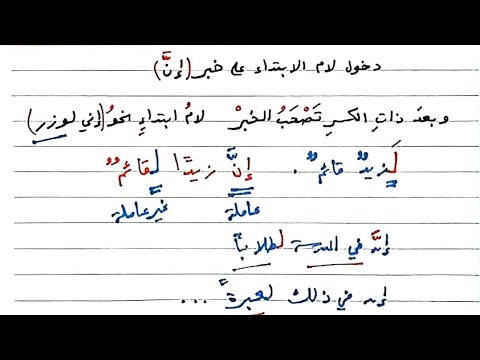 دخول لام الابتداء على خبر (إنَّ)
وبعدَ ذاتِ الكسرِ تَصْحَبُ الخبرْ لامُ ابتداءٍ نحوُ (إني لوزر)
لَزيدٌ قائمٌ . إنَّ زيدًا لقائمٌ
عاملة غير عاملة
إنَّ في المدرسة لطلابًا
إن في ذلك لعبرةً ...